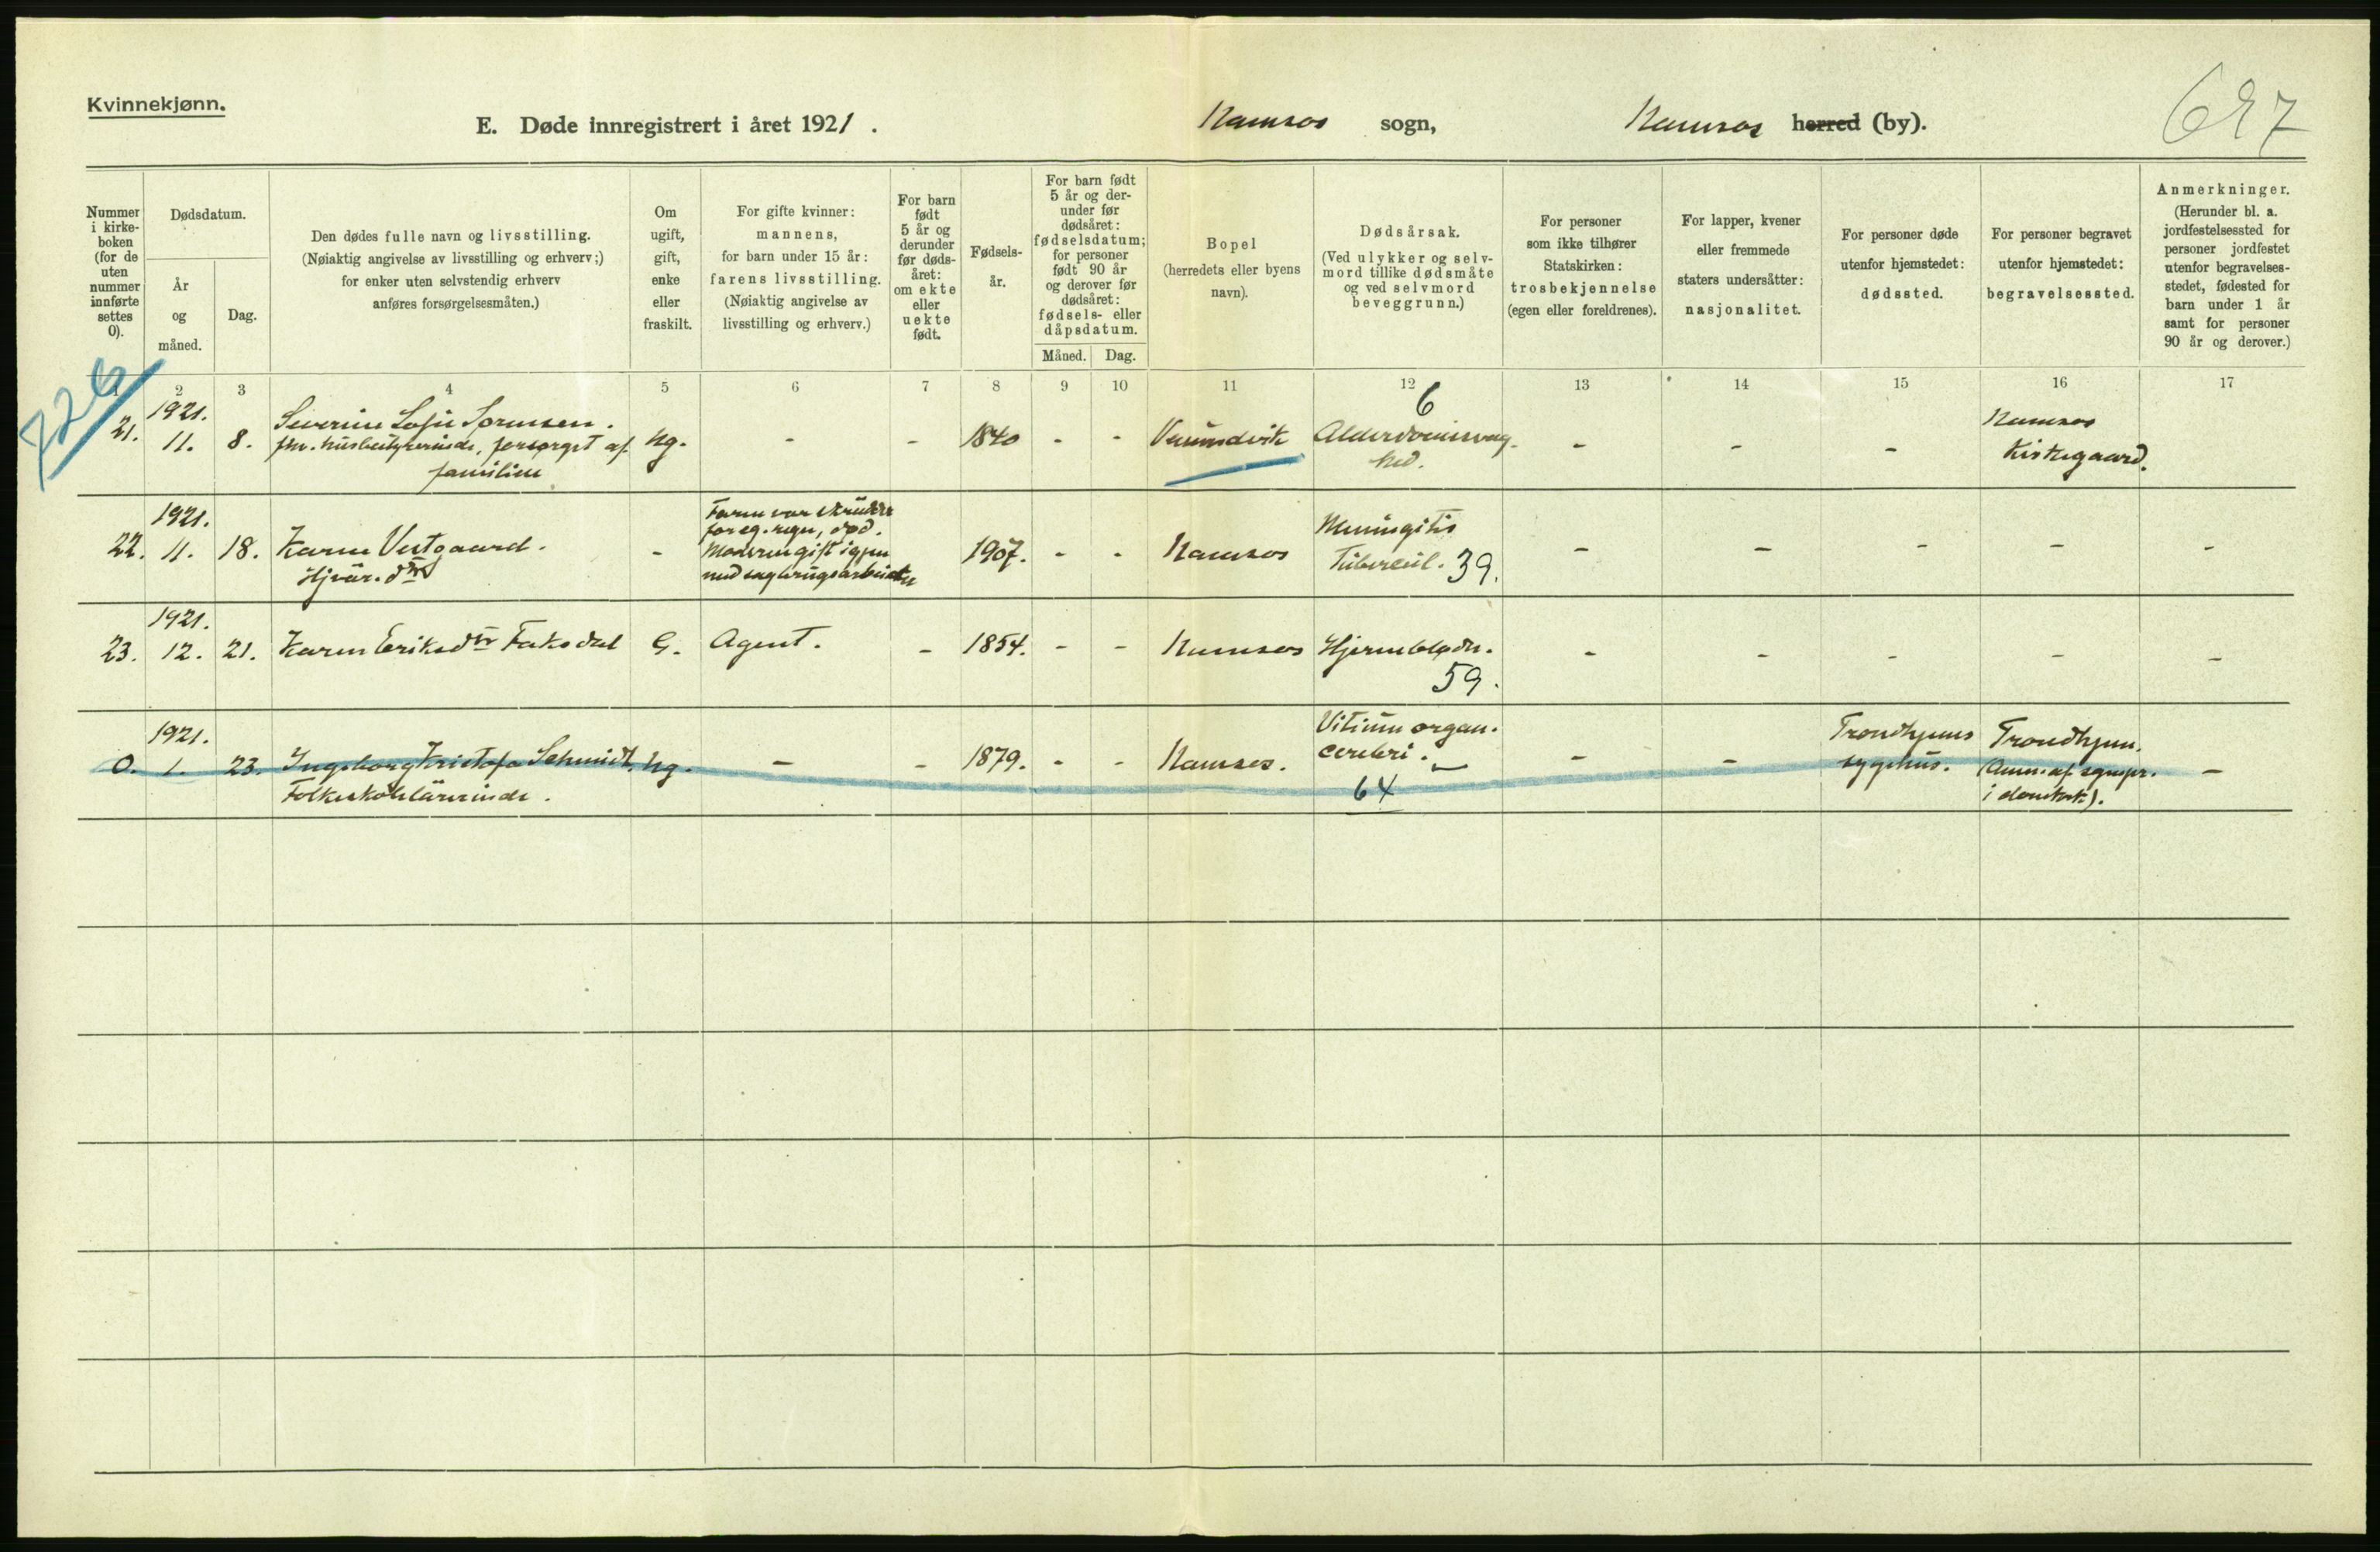 Kvinnekjønn.
E. Døde innregistrert i året 1921.
Namsos sogn,
Namsos herred (by).
697
Nummer i kirkeboken (for de uten nummer innførte settes 0).
Dødsdatum.
År og måned.
Dag.
Den dødes fulle navn og livsstilling.
(Nøiaktig angivelse av livsstilling og erhverv;)
for enker uten selvstendig erhverv
anføres forsørgelsesmåten.)
Om ugift, gift, enke eller fraskilt.
For gifte kvinner:
mannens,
for barn under 15 år:
farens livsstilling.
(Nøiaktig angivelse av
livsstilling og erhverv.)
For barn født 5 år og derunder før dødsåret: om ekte eller uekte født.
Fødselsår.
For barn født 5 år og derunder før dødsåret: fødselsdatum; for personer født 90 år og derover før dødsåret: fødsels- eller dåpsdatum.
Måned. Dag.
Bopel
(herredets eller byens
navn).
Dødsårsak.
(Ved ulykker og selvmord tillike dødsmåte
og ved selvmord
beveggrunn.)
For personer
som ikke tilhører
Statskirken:
trosbekjennelse
(egen eller foreldrenes).
For lapper, kvener
eller fremmede
staters undersåtter:
nasjonalitet.
For personer døde
utenfor hjemstedet:
dødssted.
For personer begravet
utenfor hjemstedet:
begravelsessted.
Anmerkninger.
(Herunder bl. a.
jordfestelsessted for
personer jordfestet
utenfor begravelsesstedet, fødested for
barn under 1 år
samt for personer
90 år og derover.)
1 2 3 4 5 6 7 8 9 10 11 12 13 14 15 16 17
726
21. 1921. 11. 8. Severine Sofie Sørensen.
fhv. husbestyrerinde, forsørget af
familien
ug. - - 1840 - - Vemundvik
6
Alderdomssvaghed.
- - -
Namsos
Kirkegaard.
22. 1921. 11. 18. Karen Vestgaard.
Hjvær. dtr
-
Faren var skrædder
for eg. regn, død.
Moderen gift igjen
med sagbrugsarbeider
1907. - - Namsos
Meningitis
Tubercul. 39.
- - - - -
23. 1921. 12. 21. Karen Eriksdtr Faksdal G. Agent. - 1854. - - Namsos Hjerneblødn.
59.
- - - - -
0. 1921. 1. 23. Ingeborg Kristofa Schmidt.
Folkeskolelärerinde.
ug. - - 1879. - - Namsos.
Vitium organ.
cerebri.
64
- -
Trondhjems
sygehus.
Trondhjem.
(Anm. af sognepr.
i domkirk).
-